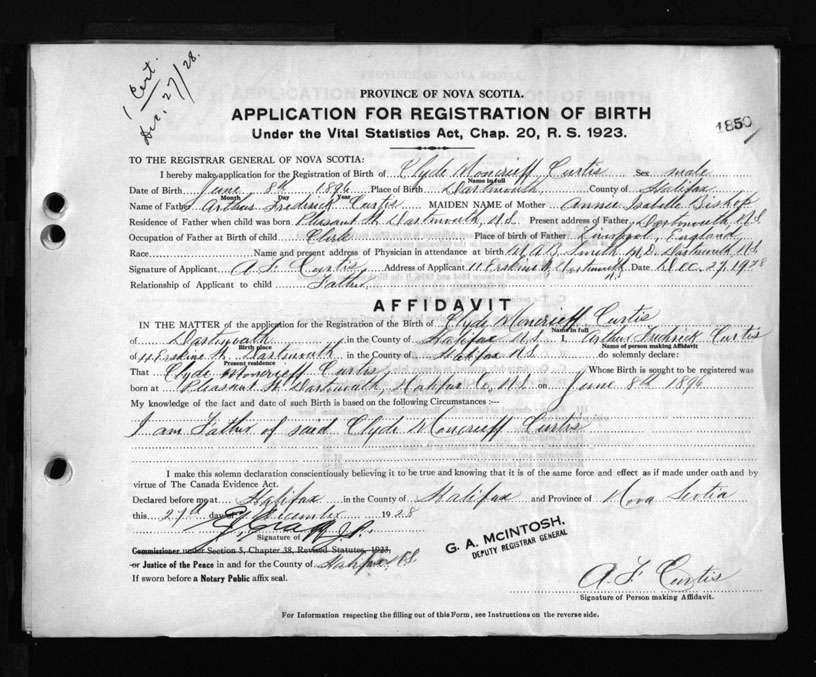 1 Cert.
Dec. 27/28.
PROVINCE OF NOVA SCOTIA.
APPLICATION FOR REGISTRATION OF BIRTH
Under the Vital Statistics Act, Chap. 20, R. S. 1923.
1850
TO THE REGISTRAR GENERAL OF NOVA SCOTIA:
I hereby make application for the Registration of Birth of Clyde Moncrieff Curtis Sex male
Name in full
Date of Birth June 8th 1896 Place of Birth Dartmouth County of Halifax
Month Day Year
Name of Father Arthur Frederick Curtis MAIDEN NAME of Mother Annie Isabelle Bishop
Residence of Father when child was born Pleasant St. Dartmouth, N.S. Present address of Father Dartmouth N.S
Occupation of Father at Birth of child Clerk Place of Birth of Father Liverpool, England
Race Name and present address of Physician in attendance at birth M. A. B. Smith M.D. Dartmouth N.S
Signature of Applicant A. F. Curtis Address of Applicant 11 Erskine St, Dartmouth Date Dec. 27, 1928
Relationship of Applicant to child Father
AFFIDAVIT
IN THE MATTER of the application for the Registration of the Birth of Clyde Moncrieff Curtis
Name in full
of Dartmouth in the County of Halifax N.S I, Arthur Fredrick Curtis
Birth place Name of person making Affidavit
of 11 Erskine St. Dartmouth in the County of Halifax N.S do solemnly declare:
Present residence
That Clyde Moncrieff Curtis Whose Birth is sought to be registered was
born at Pleasant St. Dartmouth, Halifax Co, N.S on June 8th 1896
My knowledge of the fact and date of such Birth is based on the following Circumstances :—
I am Father of said Clyde Moncrieff Curtis
I make this solemn declaration conscientiously believing it to be true and knowing that it is of the same force and effect as if made under oath and by
virtue of The Canada Evidence Act.
Declared before me at Halifax in the County of Halifax and Province of Nova Scotia
this 27th day of December 1928
J.P.
Signature of
G. A. McINTOSH,
DEPUTY REGISTRAR GENERAL
Commissioner under Section 5, Chapter 38, Revised Statutes, 1923,
or Justice of the Peace in and for the County of Halifax N.S.
If sworn before a Notary Public affix seal.
A. F. Curtis
Signature of Person making Affidavit.
For Information respecting the filling out of this Form, see Instructions on the reverse side.